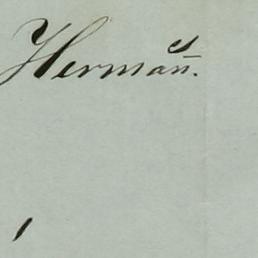 Hermañ.